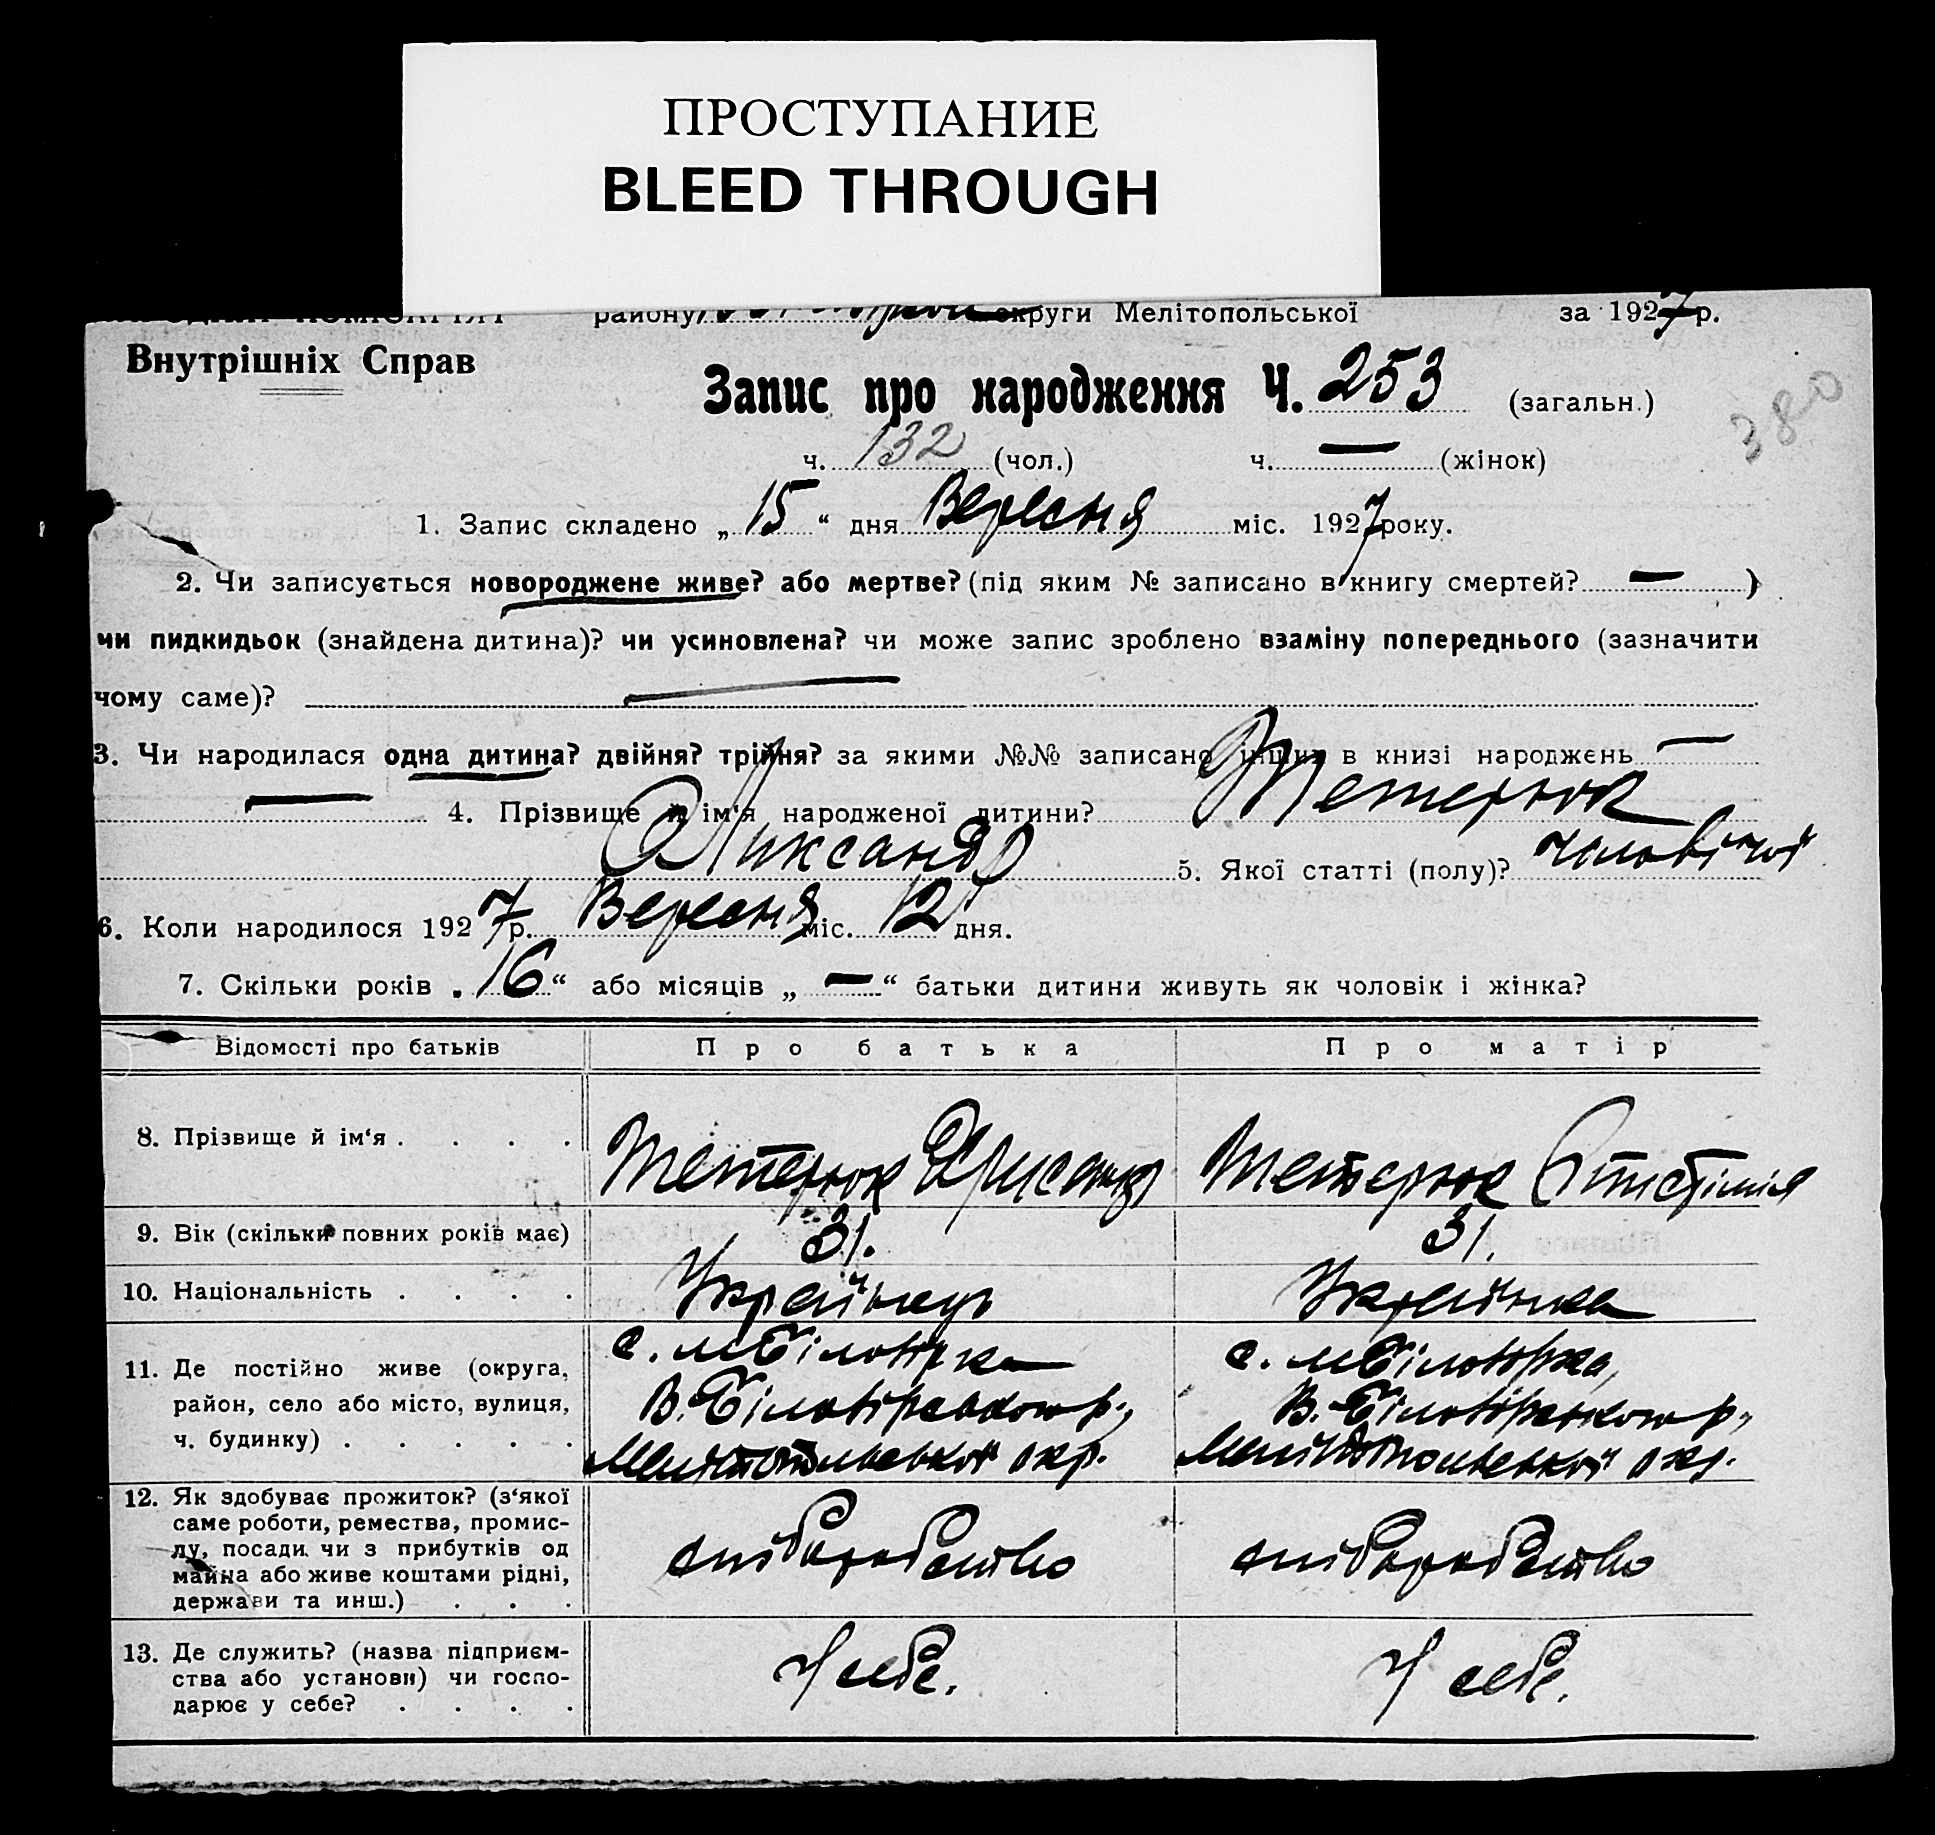 ПРОСТУПАНИЕ
BLEED THROUGH
району округи Мелітопольської за 1927 р.
Внутрішніх Справ
Запис про народження Ч. 253 (загальн.)
380
ч. 132 (чол.) ч. — (жінок)
1. Запис складено „ 15 “ дня Вересня міс. 1927 року.
2. Чи записується новороджене живе? або мертве? (під яким № записано в книгу смертей? — )
чи пидкидьок (знайдена дитина)? чи усиновлена? чи може запис зроблено взаміну попереднього (зазначити
чому саме)? —
3. Чи народилася одна дитина? двійня? трійня? за якими №№ записано інших в книзі народжень —
— 4. Прізвище й ім‘я народженої дитини? Тетерюк
Олександр 5. Якої статті (полу)? чоловічої
6. Коли народилося 1927 р. Вересня міс. 12 дня.
7. Скільки років „ 16 “ або місяців „ — “ батьки дитини живуть як чоловік і жінка?
Відомості про батьків Про батька Про матір
8. Прізвище й ім‘я . . . . Тетерюк Тетерюк
9. Вік (скільки повних років має) 31. 31.
10. Національність . . . . Українець Українка
11. Де постійно живе (округа, с. М Білозірка с. М Білозірка,
район, село або місто, вулиця, В. Білозірського р., В. Білозірського р.,
ч. будинку) . . . . . Мелітопольської окр. Мелітопольської окр.
12. Як здобуває прожиток? (з‘якої
саме роботи, ремества, промис-
лу, посади, чи з прибутків од хліборобство хліборобство
майна або живе коштами рідні,
держави та инш.) . . .
13. Де служить? (назва підприєм-
ства або установи) чи госпо- У себе. У себе.
дарює у себе? . . . .